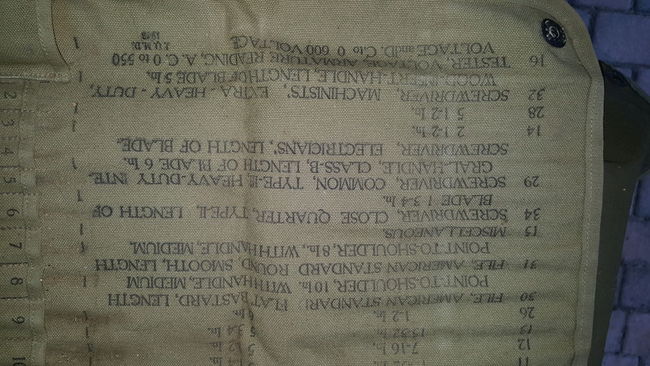 11
12 7-16 In.
13 13-32 In.
26 1-2 In.
30 FILE, AMERICAN STANDARD FLAT BASTARD, LENGTH
POINT-TO-SHOULDER, 10 In. WITH HANDLE, MEDIUM
31 FILE, AMERICAN STANDARD ROUND SMOOTH, LENGTH 1
POINT-TO-SHOULDER, 8 In., WITH HANDLE, MEDIUM.
15 MISCELLANEOUS. 1
34 SCREWDRIVER, CLOSE QUARTER, TYPE-II, LENGTH OF 1
BLADE 1 3-4 In.
29 SCREWDRIVER, COMMON, TYPE-II, HEAVY-DUTY INTE- 1
GRAL-HANDLE, CLASS-B, LENGTH OF BLADE 6 In.
SCREWDRIVER, ELECTRICIANS, LENGTH OF BLADE.
14 2 1-2 In. 1
28 5 1-2 In. 1
32 SCREWDRIVER, MACHINISTS', EXTRA-HEAVY-DUTY, 1
WOOD INSERT-HANDLE, LENGTH OF BLADE 5 In.
16 TESTER, VOLTAGE, ARMATURE READING, A.C. 0 to 550 1
VOLTAGE and D.C. to 0 600 VOLTAGE
J.Q.M.D.
1943
2
3
4
5
6
7
8
9
10